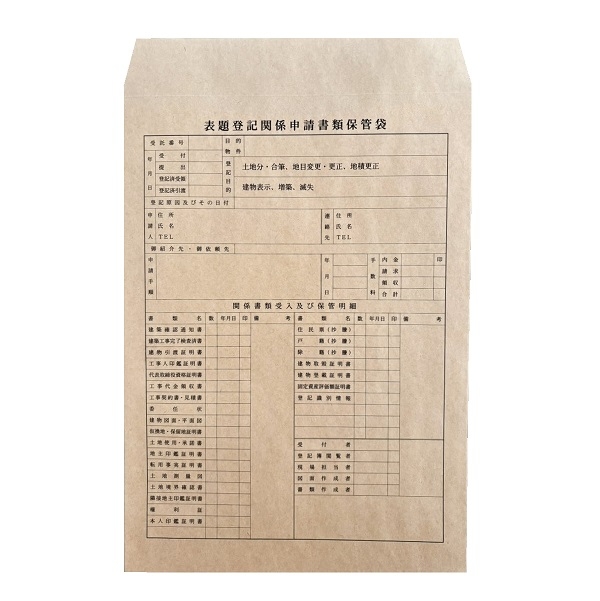 表題登記関係申請書類保管袋
受託番号
目的
物件
年月日
受付
提出
登記済受領
登記済引渡
登記目的
土地分・合筆、地目変更・更正、地積更正
建物表示、増築、滅失
登記原因及びその日付
申請人
住所
氏名
TEL
連絡先
住所
氏名
TEL
御紹介先・御依頼先
申請手続
年月日
手数料
内金 印
請求
領収
合計
関係書類受入及び保管明細
書類名 数 年月日 印 備考
建築確認通知書
建築工事完了検査済書
建物引渡証明書
工事人印鑑証明書
代表取締役資格証明書
工事代金領収書
工事契約書・見積書
委任状
建物図面・平面図
仮換地・保留地証明書
土地使用・承諾書
地主印鑑証明書
転用事実証明書
土地測量図
土地境界確認書
隣接地主印鑑証明書
権利証
本人印鑑証明書
書類名 数 年月日 印 備考
住民票(抄・謄)
戸籍(抄・謄)
除籍(抄・謄)
建物取毀証明書
建物登載証明書
固定資産評価額証明書
登記識別情報
受付者
登記簿閲覧者
現場担当者
図面作成者
書類作成者